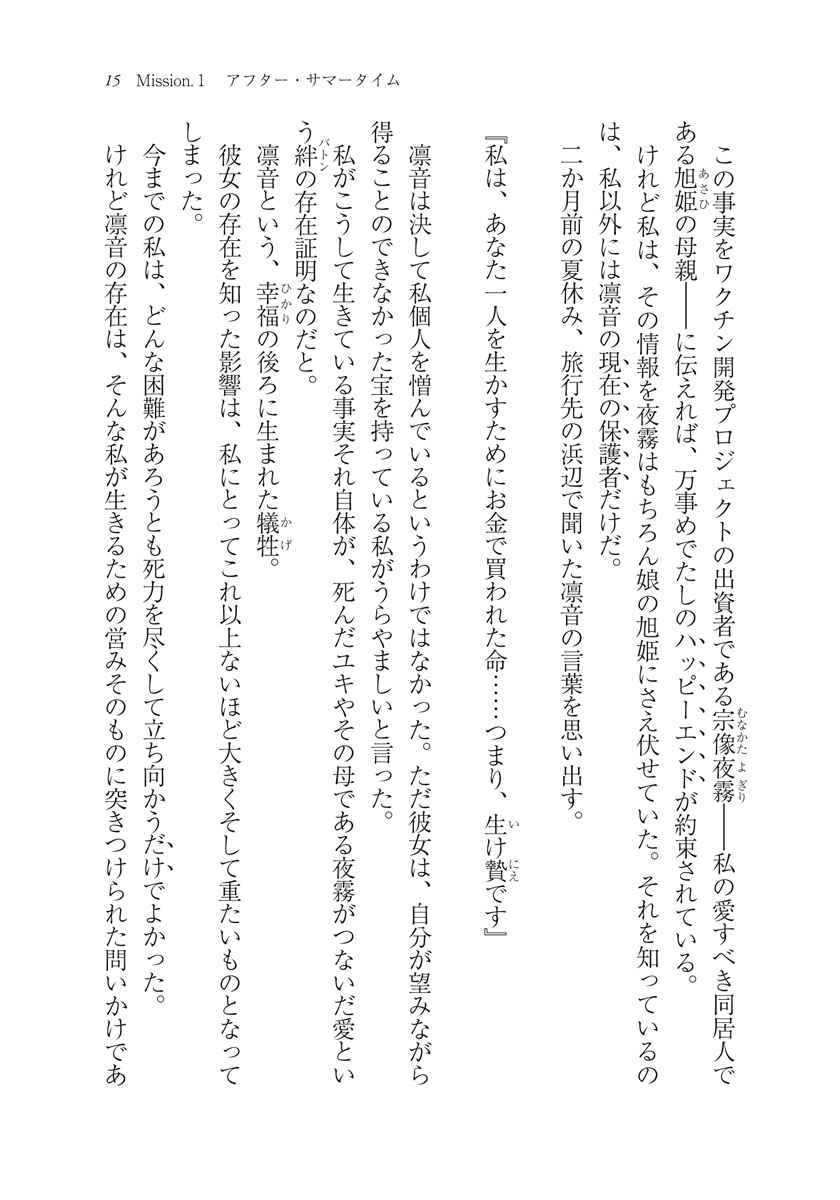 15 Mission.1 アフター・サマータイム
この事実をワクチン開発プロジェクトの出資者である宗像夜霧――私の愛すべき同居人で
ある旭姫の母親――に伝えれば、万事めでたしのハッピーエンドが約束されている。
けれど私は、その情報を夜霧はもちろん娘の旭姫にさえ伏せていた。それを知っているの
は、私以外には凛音の現在の保護者だけだ。
二か月前の夏休み、旅行先の浜辺で聞いた凛音の言葉を思い出す。
『私は、あなた一人を生かすためにお金で買われた命……つまり、生け贄です』
凛音は決して私個人を憎んでいるというわけではなかった。ただ彼女は、自分が望みながら
得ることのできなかった宝を持っている私がうらやましいと言った。
私がこうして生きている事実それ自体が、死んだユキやその母である夜霧がつないだ愛とい
う絆の存在証明なのだと。
凛音という、幸福の後ろに生まれた犠牲。
彼女の存在を知った影響は、私にとってこれ以上ないほど大きくそして重たいものとなって
しまった。
今までの私は、どんな困難があろうとも死力を尽くして立ち向かうだけでよかった。
けれど凛音の存在は、そんな私が生きるための営みそのものに突きつけられた問いかけであ